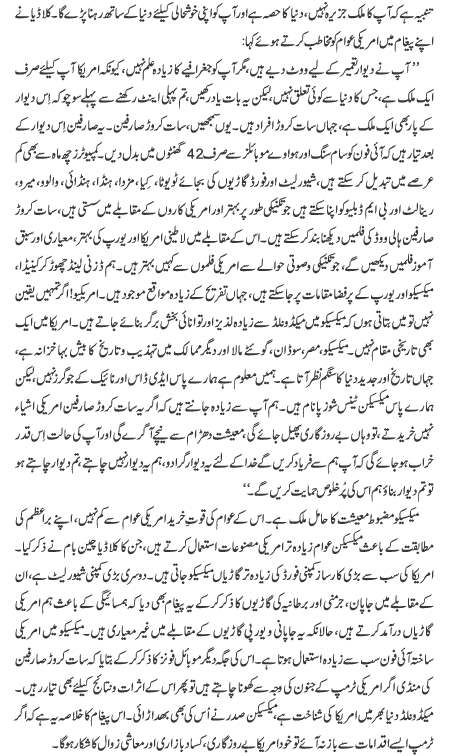 تنبیہ ہے کہ آپ کا ملک جزیرہ نہیں، دنیا کا حصہ ہے اور آپ کو اپنی خوشحالی کیلئے دنیا کے ساتھ رہنا پڑے گا۔ کلاڈیا نے
اپنے پیغام میں امریکی عوام کو مخاطب کرتے ہوئے کہا:
’’آپ نے دیوار تعمیر کے لیے ووٹ دیے ہیں، مگر آپ کو جغرافیے کا زیادہ علم نہیں، کیونکہ امریکا آپ کیلئے صرف
ایک ملک ہے، جس کا دنیا سے کوئی تعلق نہیں، لیکن یہ بات یاد رکھیں، تم پہلی اینٹ رکھنے سے پہلے سوچو کہ اِس دیوار کے
پار بھی ایک ملک ہے، جہاں سات کروڑ افراد ہیں۔ یوں سمجھیں، سات کروڑ صارفین۔ یہ صارفین اِس دیوار کے
بعد تیار ہیں کہ آئی فون کو سام سنگ اور ہواوے موبائلز سے صرف 42 گھنٹوں میں بدل دیں۔ کمپیوٹرز چھ ماہ سے بھی کم
عرصے میں تبدیل کر سکتے ہیں، شیورلیٹ اور فورڈ گاڑیوں کی بجائے ٹویوٹا، کِیا، مزدا، ہنڈا، ہنڈائی، والوو، میرو،
رینالٹ اور بی ایم ڈبلیو کو اپنا سکتے ہیں جو تکنیکی طور پر بہتر اور امریکی کاروں کے مقابلے میں سستی ہیں، سات کروڑ
صارفین ہالی ووڈ کی فلمیں دیکھنا بند کر سکتے ہیں۔ اس کے مقابلے میں لاطینی امریکا اور یورپ کی بہتر، معیاری اور سبق
آموز فلمیں دیکھیں گے، جو تکنیکی وصوتی حوالے سے امریکی فلموں سے کہیں بہتر ہیں۔ ہم ڈزنی لینڈ چھوڑ کر کینیڈا،
میکسیکو اور یورپ کے پرفضا مقامات پر جا سکتے ہیں، جہاں تفریح کے زیادہ مواقع موجود ہیں۔ امریکیو! اگر تمہیں یقین
نہیں تو میں بتاتی ہوں کہ میکسیکو میں میکڈونلڈ سے زیادہ لذیز اور توانائی بخش برگر بنائے جاتے ہیں۔ امریکا میں ایک
بھی تاریخی مقام نہیں۔ میکسیکو، مصر، سوڈان، گوئٹے مالا اور دیگر ممالک میں تہذیب و تاریخ کا بیش بہا خزانہ ہے،
جہاں تاریخ اور جدید دنیا کا سنگم نظر آتا ہے۔ ہمیں معلوم ہے ہمارے پاس ایڈی ڈاس اور نائیک کے جوگرز نہیں، لیکن
ہمارے پاس میکسیکن ٹینس شوز پانام ہیں۔ ہم آپ سے زیادہ جانتے ہیں کہ اگر یہ سات کروڑ صارفین امریکی اشیاء
نہیں خریدتے تو، وہاں بے روزگاری پھیل جائے گی، معیشت دھڑام سے نیچے آ گرے گی اور آپ کی حالت اِس قدر
خراب ہو جائے گی کہ آپ ہم سے فریاد کریں گے خدا کے لئے یہ دیوار گرا دو، ہم یہ دیوار نہیں چاہتے، تم دیوار چاہتے ہو
تو تم دیوار بناؤ ہم اس کی پُر خلوص حمایت کریں گے۔‘‘
میکسیکو مضبوط معیشت کا حامل ملک ہے۔ اس کے عوام کی قوتِ خرید امریکی عوام سے کم نہیں، اپنے براعظم کی
مطابقت کے باعث میکسیکن عوام زیادہ تر امریکی مصنوعات استعمال کرتے ہیں، جن کا کلاڈیا چین بام نے ذکر کیا۔
امریکا کی سب سے بڑی کارساز کمپنی فورڈ کی زیادہ تر گاڑیاں میکسیکو جاتی ہیں۔ دوسری بڑی کمپنی شیورلیٹ ہے، ان
کے مقابلے میں جاپان، جرمنی اور برطانیہ کی گاڑیوں کا ذکر کر کے یہ پیغام بھی دیا کہ ہمسائیگی کے باعث ہم امریکی
گاڑیاں درآمد کرتے ہیں، حالانکہ یہ جاپانی و یورپی گاڑیوں کے مقابلے میں غیر معیاری ہیں۔ میکسیکو میں امریکی
ساختہ آئی فون سب سے زیادہ استعمال ہوتا ہے۔ اس کی جگہ دیگر موبائل فونز کا ذکر کر کے بتایا کہ سات کروڑ صارفین
کی منڈی اگر امریکی ٹرمپ کے جنون کی وجہ سے کھونا چاہتے ہیں تو پھر اس کے اثرات و نتائج کیلئے بھی تیار رہیں۔
میکڈونلڈ دنیا بھر میں امریکا کی شناخت ہے، میکسیکن صدر نے اُس کی بھی بھد اڑائی۔ اس پیغام کا خلاصہ یہ ہے کہ اگر
ٹرمپ ایسے اقدامات سے باز نہ آئے تو خود امریکا بے روزگاری، کساد بازاری اور معاشی زوال کا شکار ہوگا۔